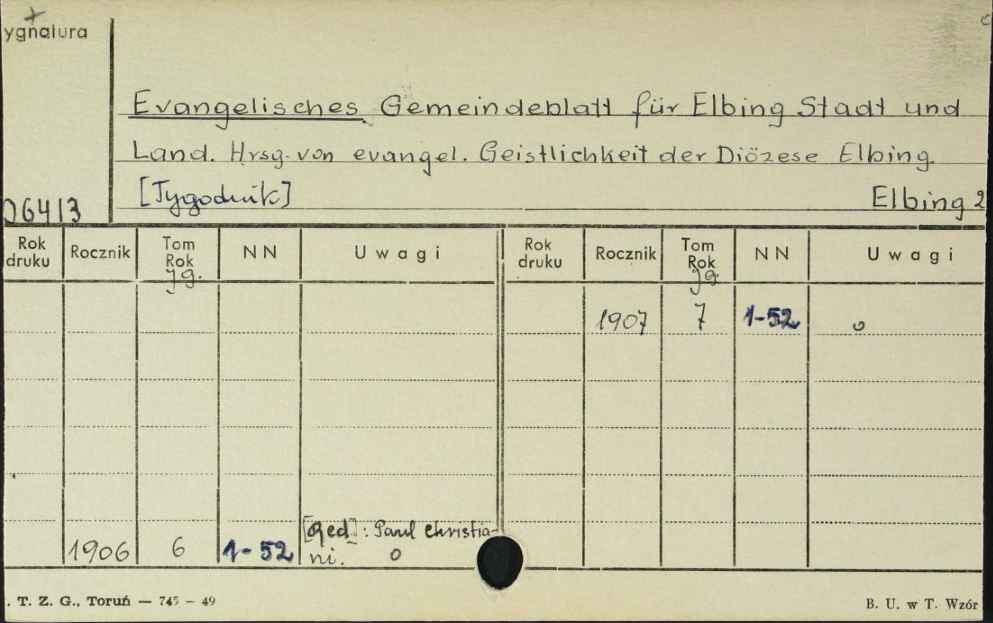 ygnatura
Evangelisches Gemeindeblatt für Elbing Stadt und
Land. Hrsg. von evangel. Geistlichkeit der Diözese Elbing.
[Tygodnik] Elbing 2
06413
Rok druku Rocznik Tom Rok Jg. NN Uwagi Rok druku Rocznik Tom Rok Jg. NN Uwagi
1907 7 1-52 o
[Red]: Paul Christia-
1906 6 1-52 ni. o
. T. Z. G., Toruń — 745 - 49 B. U. w T. Wzór